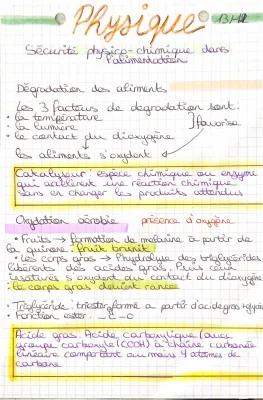 Physique
Sécurité physico-chimique dans
l'alimentation
Dégradation des aliments
Les 3 facteurs de degradation sont:
• la température
• la lumière
] favorise
• le contact du dioxygène
les aliments s'oxydent
Catalyseur: espèce chimique ou enzyme
qui accélèrent une réaction chimique
sans en changer les produits attendus
Oxydation aérobie présence d'oxygène
• Fruits → formation de melanine à partir de
la quinone: fruit brunit
• Les corps gras → l'hydrolyse des triglycérides
libèrent des acides gras. Puis ceux
insaturés s'oxydent au contact du dioxygène
le corps gras devient rance
• Triglycéride: triester formé a partir d'acides gras +
• Fonction ester:
Acide gras: Acide carboxylique (avec
groupe carboxyle (COOH) à chaîne carbonée
linéaire comportant au moins 4 atomes de
carbone